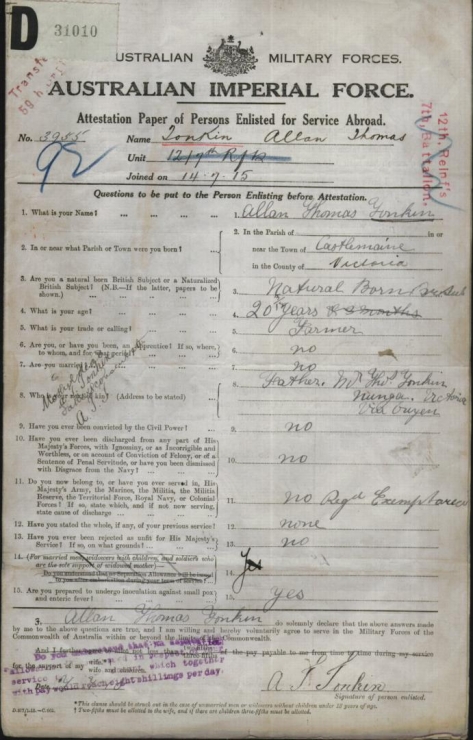 D 31010
AUSTRALIAN MILITARY FORCES.
AUSTRALIAN IMPERIAL FORCE.
Attestation Paper of Persons Enlisted for Service Abroad.
12th. Reinf's
7th Battalion.
No. 3955 Name Tonkin Allan Thomas
92 Unit 12/7th Rfts
Joined on 14.7.15
Questions to be put to the Person Enlisting before Attestation.
1. What is your Name? ... ... ... 1. Allan Thomas Tonkin
2. In or near what Parish or Town were you born? ... 2. In the Parish of in or
near the Town of Castlemaine
in the County of Victoria
3. Are you a natural born British Subject or a Naturalized British Subject? (N.B.—If the latter, papers to be shown.) 3. Natural Born
4. What is your age? ... ... ... 4. 20 Years
5. What is your trade or calling? ... 5. Farmer
6. Are you, or have you been, an Apprentice? If so, where, to whom, and for what period? 6. no
7. Are you married? 7. no
8. Who is your next of kin? (Address to be stated) 8. Father. Mr Thos. Tonkin
Nunga Victoria
Via Ouyen
9. Have you ever been convicted by the Civil Power? 9. no
10. Have you ever been discharged from any part of His Majesty's Forces, with Ignominy, or as Incorrigible and Worthless, or on account of Conviction of Felony, or of a Sentence of Penal Servitude, or have you been dismissed with Disgrace from the Navy? ... 10. no
11. Do you now belong to, or have you ever served in, His Majesty's Army, the Marines, the Militia, the Militia Reserve, the Territorial Force, Royal Navy, or Colonial Forces? If so, state which, and if not now serving, state cause of discharge ... 11. no Exempt area
12. Have you stated the whole, if any, of your previous service? 12. none
13. Have you ever been rejected as unfit for His Majesty's Service? If so, on what grounds? 13. no
14. (For married men, widowers with children, and soldiers who are the sole support of widowed mother)—
Do you understand that no Separation Allowance will be issued 14. Yes
15. Are you prepared to undergo inoculation against small pox and enteric fever? 15. Yes
I, Allan Thomas Tonkin do solemnly declare that the above answers made
by me to the above questions are true, and I am willing and hereby voluntarily agree to serve in the Military Forces of the
Commonwealth of Australia within or beyond the limits of the Commonwealth.
of the pay payable to me from time to time during my service
for the support of my wife
which together
eight shillings per day.
A. T. Tonkin
Signature of person enlisted.
* This clause should be struck out in the case of unmarried men or widowers without children under 18 years of age.
† Two-fifths must be allotted to the wife, and if there are children three-fifths must be allotted.